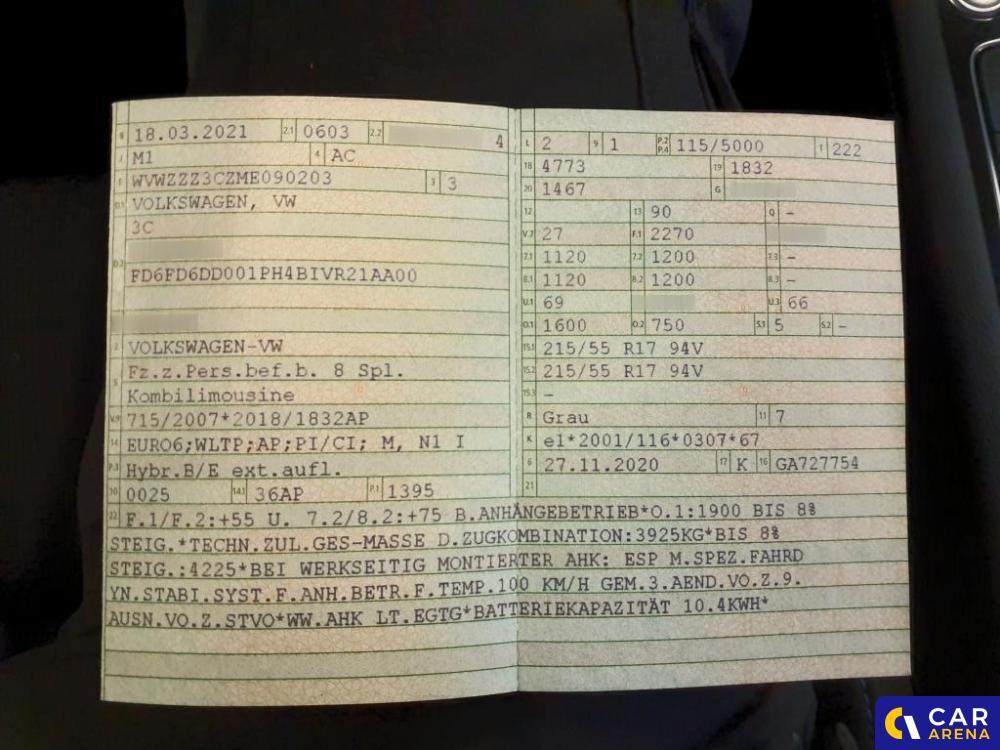 B 18.03.2021 2.1 0603 2.2 4
J M1 4 AC
E WVWZZZ3CZME090203 3 3
D.1 VOLKSWAGEN, VW
3C
D.2
FD6FD6DD001PH4BIVR21AA00
2 VOLKSWAGEN-VW
5 Fz.z.Pers.bef.b. 8 Spl.
Kombilimousine
V.9 715/2007*2018/1832AP
14 EURO6;WLTP;AP;PI/CI; M, N1 I
P.3 Hybr.B/E ext.aufl.
10 0025 14.1 36AP P.1 1395
L 2 9 1 P.2 P.4 115/5000 T 222
18 4773 19 1832
20 1467 G
12 13 90 Q -
V.7 27 F.1 2270
7.1 1120 7.2 1200 7.3 -
8.1 1120 8.2 1200 8.3 -
U.1 69 U.3 66
O.1 1600 O.2 750 S.1 5 S.2 -
15.1 215/55 R17 94V
15.2 215/55 R17 94V
15.3 -
R Grau 11 7
K e1*2001/116*0307*67
6 27.11.2020 17 K 16 GA727754
21
22 F.1/F.2:+55 U. 7.2/8.2:+75 B.ANHÄNGEBETRIEB*O.1:1900 BIS 8%
STEIG.*TECHN.ZUL.GES-MASSE D.ZUGKOMBINATION:3925KG*BIS 8%
STEIG.:4225*BEI WERKSEITIG MONTIERTER AHK: ESP M.SPEZ.FAHRD
YN.STABI.SYST.F.ANH.BETR.F.TEMP.100 KM/H GEM.3.AEND.VO.Z.9.
AUSN.VO.Z.STVO*WW.AHK LT.EGTG*BATTERIEKAPAZITÄT 10.4KWH*
CAR
ARENA